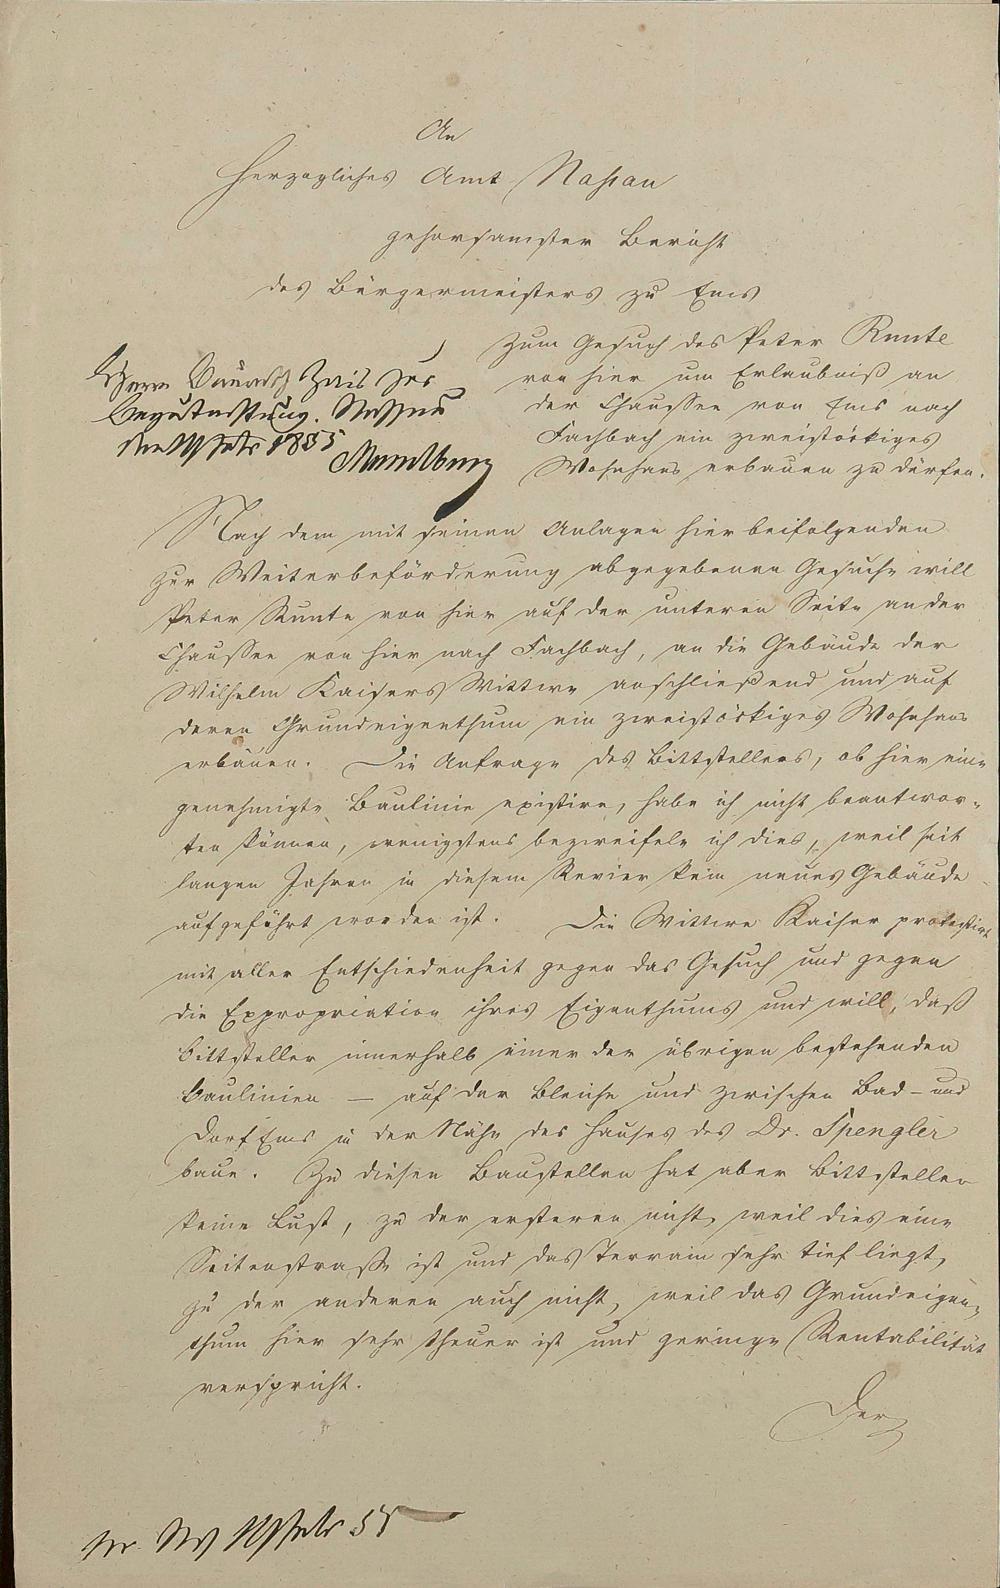 An
Herzogliches Amt Naßau
gehorsamster Bericht
des Bürgermeisters zu Ems
zum Gesuch des Peter Runte
von hier um Erlaubniß an
der Chaussee von Ems nach
Fachbach ein zweistöckiges
Wohnhaus erbauen zu dürfen.
Herrn Baurath Zais zur
Begutachtung. Nassau
1855
Nach dem mit seinen Anlagen hier beifolgenden
zur Weiterbeförderung abgegebenen Gesuche will
Peter Runte von hier auf der unteren Seite an der
Chaussee von hier nach Fachbach, an die Gebäude der
Wilhelm Kaisers Wittwe anschließend und auf
deren Grundeigenthum ein zweistöckiges Wohnhaus
erbauen. Die Anfrage des Bittstellers, ob hier eine
genehmigte Baulinie existire, habe ich nicht beantwor-
ten können, wenigstens bezweifele ich dies, weil seit
langen Jahren in diesem Revier kein neues Gebäude
aufgeführt worden ist. Die Wittwe Kaiser protestirt
mit aller Entschiedenheit gegen das Gesuch und gegen
die Expropriation ihres Eigenthums und will, daß
Bittsteller innerhalb einer der übrigen bestehenden
Baulinien — auf der Bleiche und zwischen Bad- und
Dorf Ems in der Nähe des Hauses des Dr. Spengler
baue. Zu diesen Baustellen hat aber Bittsteller
keine Lust, zu der ersteren nicht, weil dies eine
Seitenstraße ist und das Terrain sehr tief liegt,
zu der anderen auch nicht, weil das Grundeigen-
thum hier sehr theuer ist und geringe Rentabilität
verspricht.
Der
55